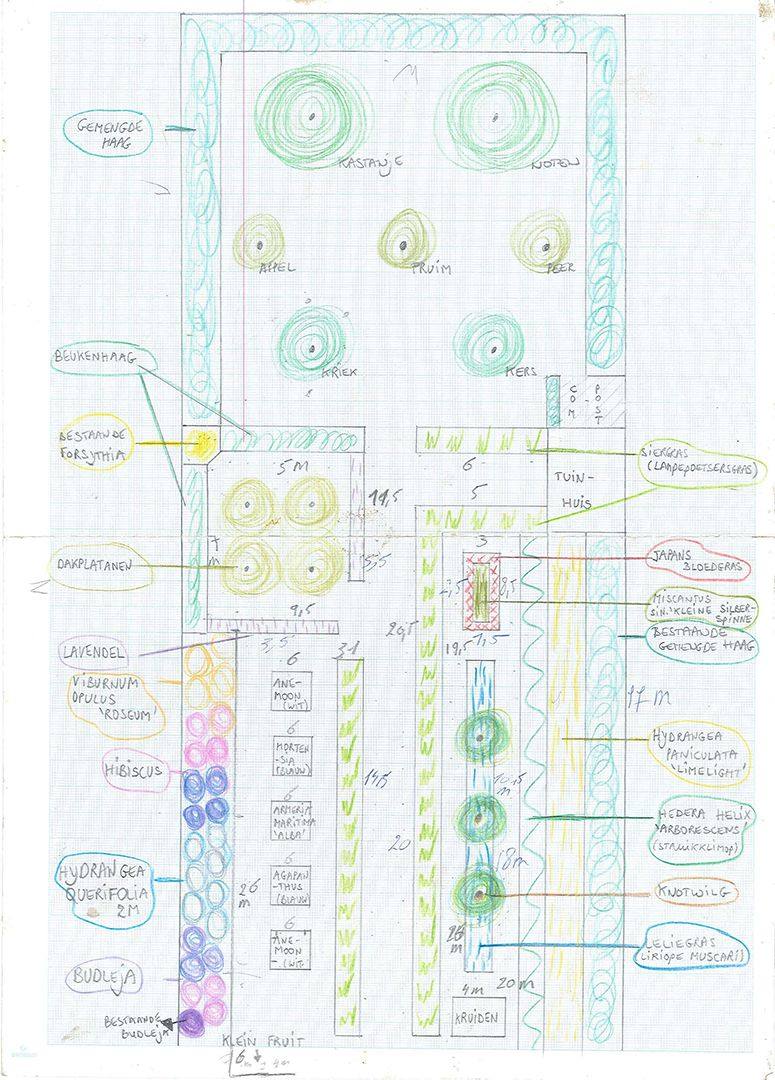 GEMENGDE
HAAG
KASTANJE
NOTEN
APPEL
PRUIM
PEER
KRIEK
KERS
BEUKENHAAG
COM-
POST
BESTAANDE
FORSYTHIA
SIERGRAS
(LAMPEPOETSERSGRAS)
5M
6
TUIN-
HUIS
11,5
5
DAKPLATANEN
7
m
5,5
3
JAPANS
BLOEDGRAS
MISCANTUS
SIN. 'KLEINE SILBER-
SPINNE
1,5
9,5
3,5
LAVENDEL
BESTAANDE
GEMENGDE HAAG
VIBURNUM
OPULUS
'ROSEUM'
6
ANE-
MOON
(WIT)
19,5
17 M
HIBISCUS
6
HORTEN
-SIA
(BLAUW)
14,5
10,5
m
HYDRANGEA
PANICULATA
'LIMELIGHT'
6
ARMERIA
MARITIMA
'ALBA'
20
HEDERA HELIX
'ARBORESCENS
(STRUIKKLIMOP)
HYDRANGEA
QUERIFOLIA
2M
26
m
6
AGAPAN
-THUS
(BLAUW)
18m
KNOTWILG
6
ANE-
MOON
-(WIT-
26
m
LELIEGRAS
(LIRIOPE MUSCARI)
BUDLEJA
4m
20m
BESTAANDE
BUDLEJA
KRUIDEN
KLEIN FRUIT
6